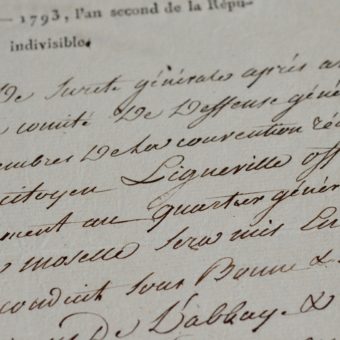 — 1793, l'an second de la Répu-
indivisible.
De Sureté générale aprés a
comité De Deffense géné
embres De la convention ré
citoyen Ligneville off
ment au quartier génér
moselle sera mis En
conduit sous Bonne &
De L'abbay. &